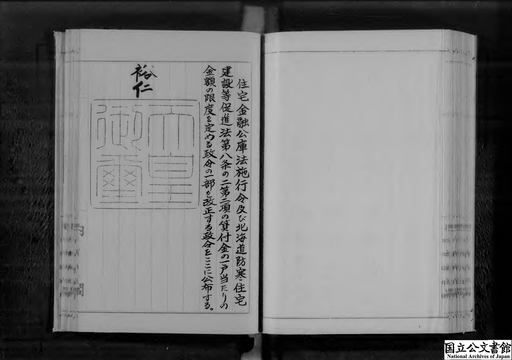 住宅金融公庫法施行令及び北海道防寒住宅
建設等促進法第八条の二第二項の貸付金の一戸当たりの
金額の限度を定める政令の一部を改正する政令をここに公布する。
裕仁
天皇
御璽
国立公文書館
National Archives of Japan